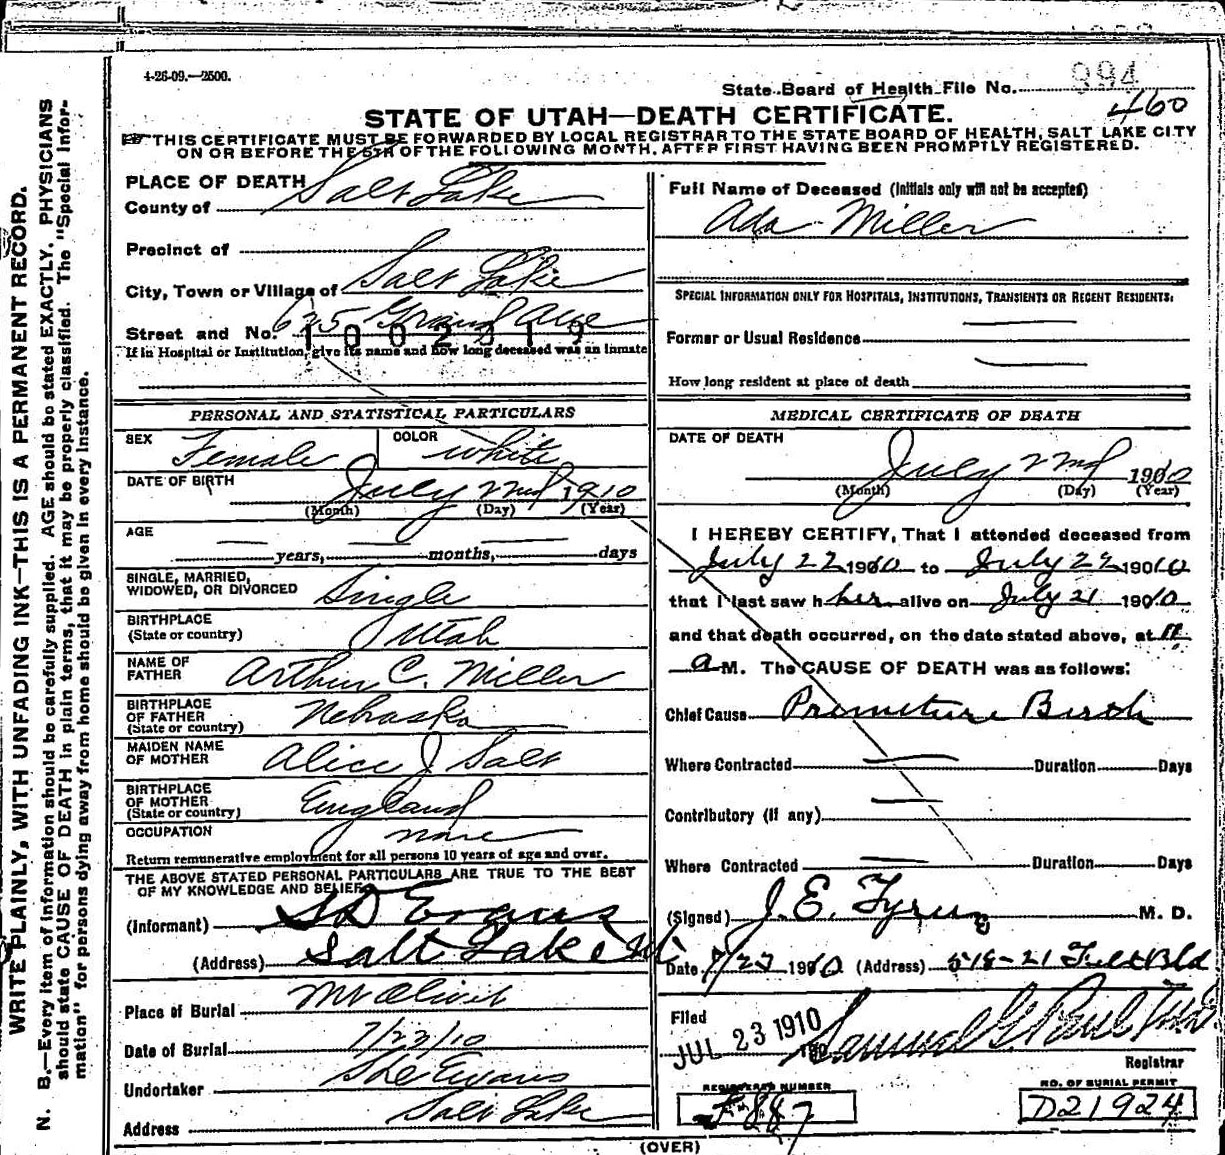 4-26-09.—2500.
State Board of Health File No. 994
460
STATE OF UTAH—DEATH CERTIFICATE.
THIS CERTIFICATE MUST BE FORWARDED BY LOCAL REGISTRAR TO THE STATE BOARD OF HEALTH, SALT LAKE CITY
ON OR BEFORE THE 5TH OF THE FOLLOWING MONTH, AFTER FIRST HAVING BEEN PROMPTLY REGISTERED.
WRITE PLAINLY, WITH UNFADING INK—THIS IS A PERMANENT RECORD.
N. B.—Every item of information should be carefully supplied. AGE should be stated EXACTLY. PHYSICIANS
should state CAUSE OF DEATH in plain terms, that it may be properly classified. The "Special Infor-
mation" for persons dying away from home should be given in every instance.
PLACE OF DEATH
County of Salt Lake
Precinct of
City, Town or Village of Salt Lake
Street and No. 635 Grand Ave
1002319
If in Hospital or Institution, give its name and how long deceased was an inmate
PERSONAL AND STATISTICAL PARTICULARS
SEX Female COLOR White
DATE OF BIRTH July 22nd 1910
(Month) (Day) (Year)
AGE — years, — months, — days
SINGLE, MARRIED,
WIDOWED, OR DIVORCED Single
BIRTHPLACE
(State or country) Utah
NAME OF
FATHER Arthur C. Miller
BIRTHPLACE
OF FATHER
(State or country) Nebraska
MAIDEN NAME
OF MOTHER Alice J Salt
BIRTHPLACE
OF MOTHER
(State or country) England
OCCUPATION none
Return remunerative employment for all persons 10 years of age and over.
THE ABOVE STATED PERSONAL PARTICULARS ARE TRUE TO THE BEST
OF MY KNOWLEDGE AND BELIEF.
(Informant) S D Evans
(Address) Salt Lake
Place of Burial Mt Olivet
Date of Burial 7/23/10
Undertaker S D Evans
Address Salt Lake
Full Name of Deceased (Initials only will not be accepted)
Ada Miller
SPECIAL INFORMATION ONLY FOR HOSPITALS, INSTITUTIONS, TRANSIENTS OR RECENT RESIDENTS:
Former or Usual Residence —
How long resident at place of death —
MEDICAL CERTIFICATE OF DEATH
DATE OF DEATH
July 22nd 1910
(Month) (Day) (Year)
I HEREBY CERTIFY, That I attended deceased from
July 22 1910 to July 22 1910
that I last saw her alive on July 21 1910
and that death occurred, on the date stated above, at 11
a M. The CAUSE OF DEATH was as follows:
Chief Cause Premeture Birth
Where Contracted — Duration Days
Contributory (if any) —
Where Contracted — Duration Days
(Signed) J. E. M. D.
Date 7/23 1910 (Address) 518-21 Bld
Filed JUL 23 1910 Samuel G. Paul
Registrar
REGISTERED NUMBER
887
NO. OF BURIAL PERMIT
D21924
(OVER)